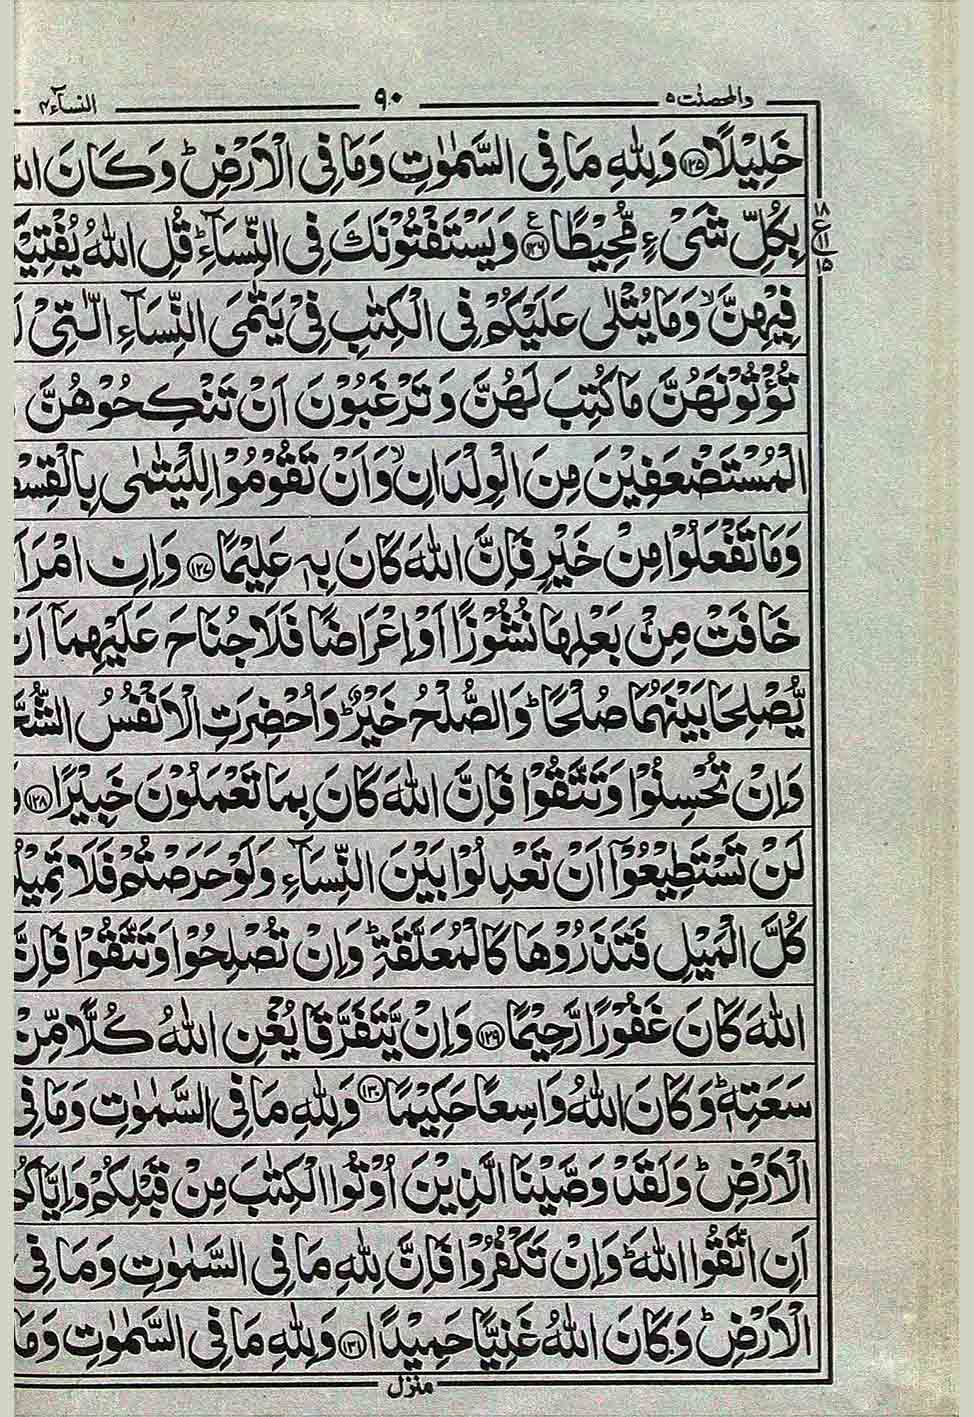 والمحصنٰت ۵ ۹۰ النسآء ۴
خَلِيْلًا ﴿۱۲۵﴾ وَلِلّٰهِ مَا فِى السَّمٰوٰتِ وَمَا فِى الْاَرْضِ ؕ وَكَانَ
بِكُلِّ شَىْءٍ مُّحِيْطًا ﴿۱۲۶﴾ ع وَيَسْتَفْتُوْنَكَ فِى النِّسَآءِ ؕ قُلِ اللّٰهُ
۱۸ ع ۱۱ ۱۵
فِيْهِنَّ ۙ وَمَا يُتْلٰى عَلَيْكُمْ فِى الْكِتٰبِ فِىْ يَتٰمَى النِّسَآءِ الّٰتِىْ
تُؤْتُوْنَهُنَّ مَا كُتِبَ لَهُنَّ وَتَرْغَبُوْنَ اَنْ تَنْكِحُوْهُنَّ
الْمُسْتَضْعَفِيْنَ مِنَ الْوِلْدَانِ ۙ وَاَنْ تَقُوْمُوْا لِلْيَتٰمٰى
وَمَا تَفْعَلُوْا مِنْ خَيْرٍ فَاِنَّ اللّٰهَ كَانَ بِهٖ عَلِيْمًا ﴿۱۲۷﴾ وَاِنِ
خَافَتْ مِنْۢ بَعْلِهَا نُشُوْزًا اَوْ اِعْرَاضًا فَلَا جُنَاحَ عَلَيْهِمَآ اَنْ
يُّصْلِحَا بَيْنَهُمَا صُلْحًا ؕ وَالصُّلْحُ خَيْرٌ ؕ وَاُحْضِرَتِ الْاَنْفُسُ
وَاِنْ تُحْسِنُوْا وَتَتَّقُوْا فَاِنَّ اللّٰهَ كَانَ بِمَا تَعْمَلُوْنَ خَبِيْرًا ﴿۱۲۸﴾
لَنْ تَسْتَطِيْعُوْۤا اَنْ تَعْدِلُوْا بَيْنَ النِّسَآءِ وَلَوْ حَرَصْتُمْ فَلَا
كُلَّ الْمَيْلِ فَتَذَرُوْهَا كَالْمُعَلَّقَةِ ؕ وَاِنْ تُصْلِحُوْا وَتَتَّقُوْا فَاِنَّ
اللّٰهَ كَانَ غَفُوْرًا رَّحِيْمًا ﴿۱۲۹﴾ وَاِنْ يَّتَفَرَّقَا يُغْنِ اللّٰهُ كُلًّا مِّنْ
سَعَتِهٖ ؕ وَكَانَ اللّٰهُ وَاسِعًا حَكِيْمًا ﴿۱۳۰﴾ وَلِلّٰهِ مَا فِى السَّمٰوٰتِ وَمَا فِى
الْاَرْضِ ؕ وَلَقَدْ وَصَّيْنَا الَّذِيْنَ اُوْتُوا الْكِتٰبَ مِنْ قَبْلِكُمْ
اَنِ اتَّقُوا اللّٰهَ ؕ وَاِنْ تَكْفُرُوْا فَاِنَّ لِلّٰهِ مَا فِى السَّمٰوٰتِ وَمَا فِى
الْاَرْضِ ؕ وَكَانَ اللّٰهُ غَنِيًّا حَمِيْدًا ﴿۱۳۱﴾ وَلِلّٰهِ مَا فِى السَّمٰوٰتِ وَمَا
منزل